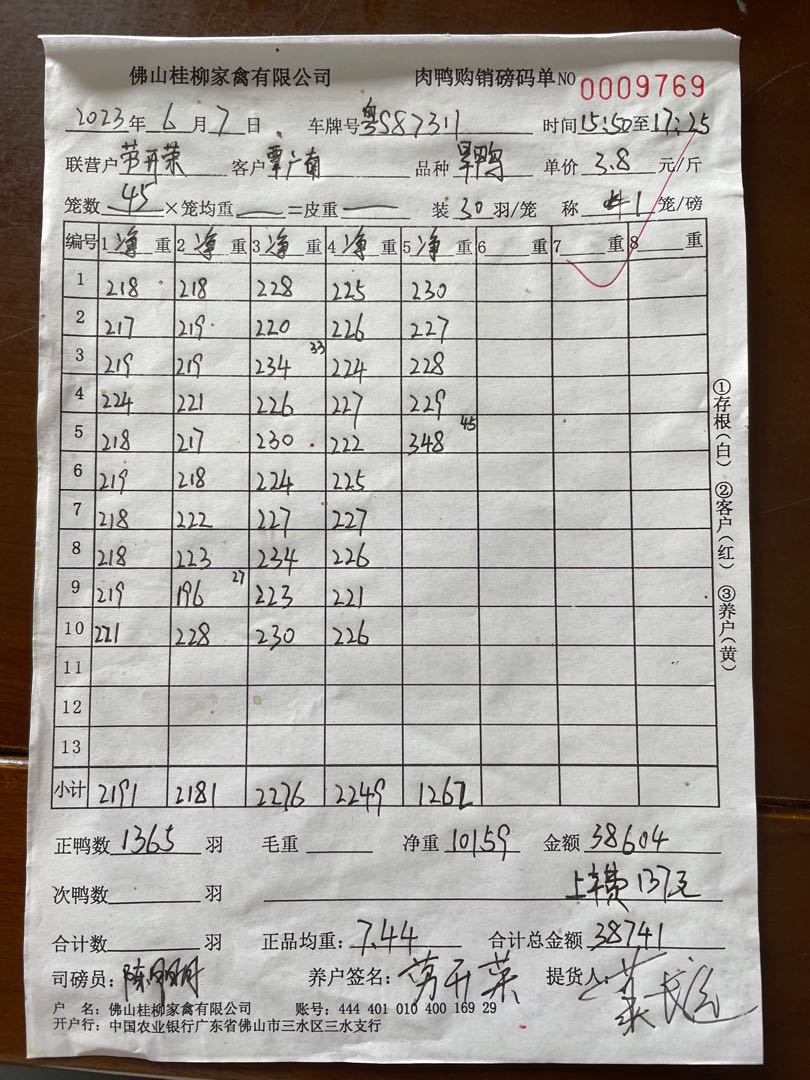 佛山桂柳家禽有限公司 肉鸭购销磅码单NO 0009769
2023年 6月 7日 车牌号 粤S87311 时间 15:50至17:25
联营户 劳开荣 客户 覃广南 品种 旱鸭 单价 3.8 元/斤
笼数 45 ×笼均重 — =皮重 — 装 30 羽/笼 称 1 笼/磅
编号 1 净 重 2 净 重 3 净 重 4 净 重 5 净 重 6 重 7 重 8 重
1 218 218 228 225 230
2 217 219 220 226 227
3 219 219 234 33 224 228
4 224 221 226 227 229
5 218 217 230 222 348 45
6 219 218 224 225
7 218 222 227 227
8 218 223 234 226
9 219 196 27 223 221
10 221 228 230 226
11
12
13
小计 2191 2181 2276 2249 1262
正鸭数 1365 羽 毛重 净重 10159 金额 38604
次鸭数 羽 上车费 137元
合计数 羽 正品均重: 7.44 合计总金额 38741
司磅员: 陈明月 养户签名: 劳开荣 提货人:
户 名: 佛山桂柳家禽有限公司 账号: 444 401 010 400 169 29
开户行: 中国农业银行广东省佛山市三水区三水支行
①存根(白) ②客户(红) ③养户(黄)